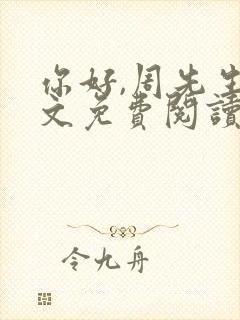 你好,周先生
文免費閱讀
令九舟